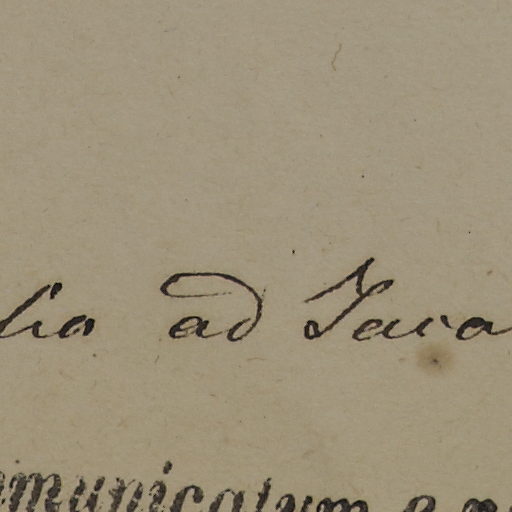 lia ad Java
omunicatum e